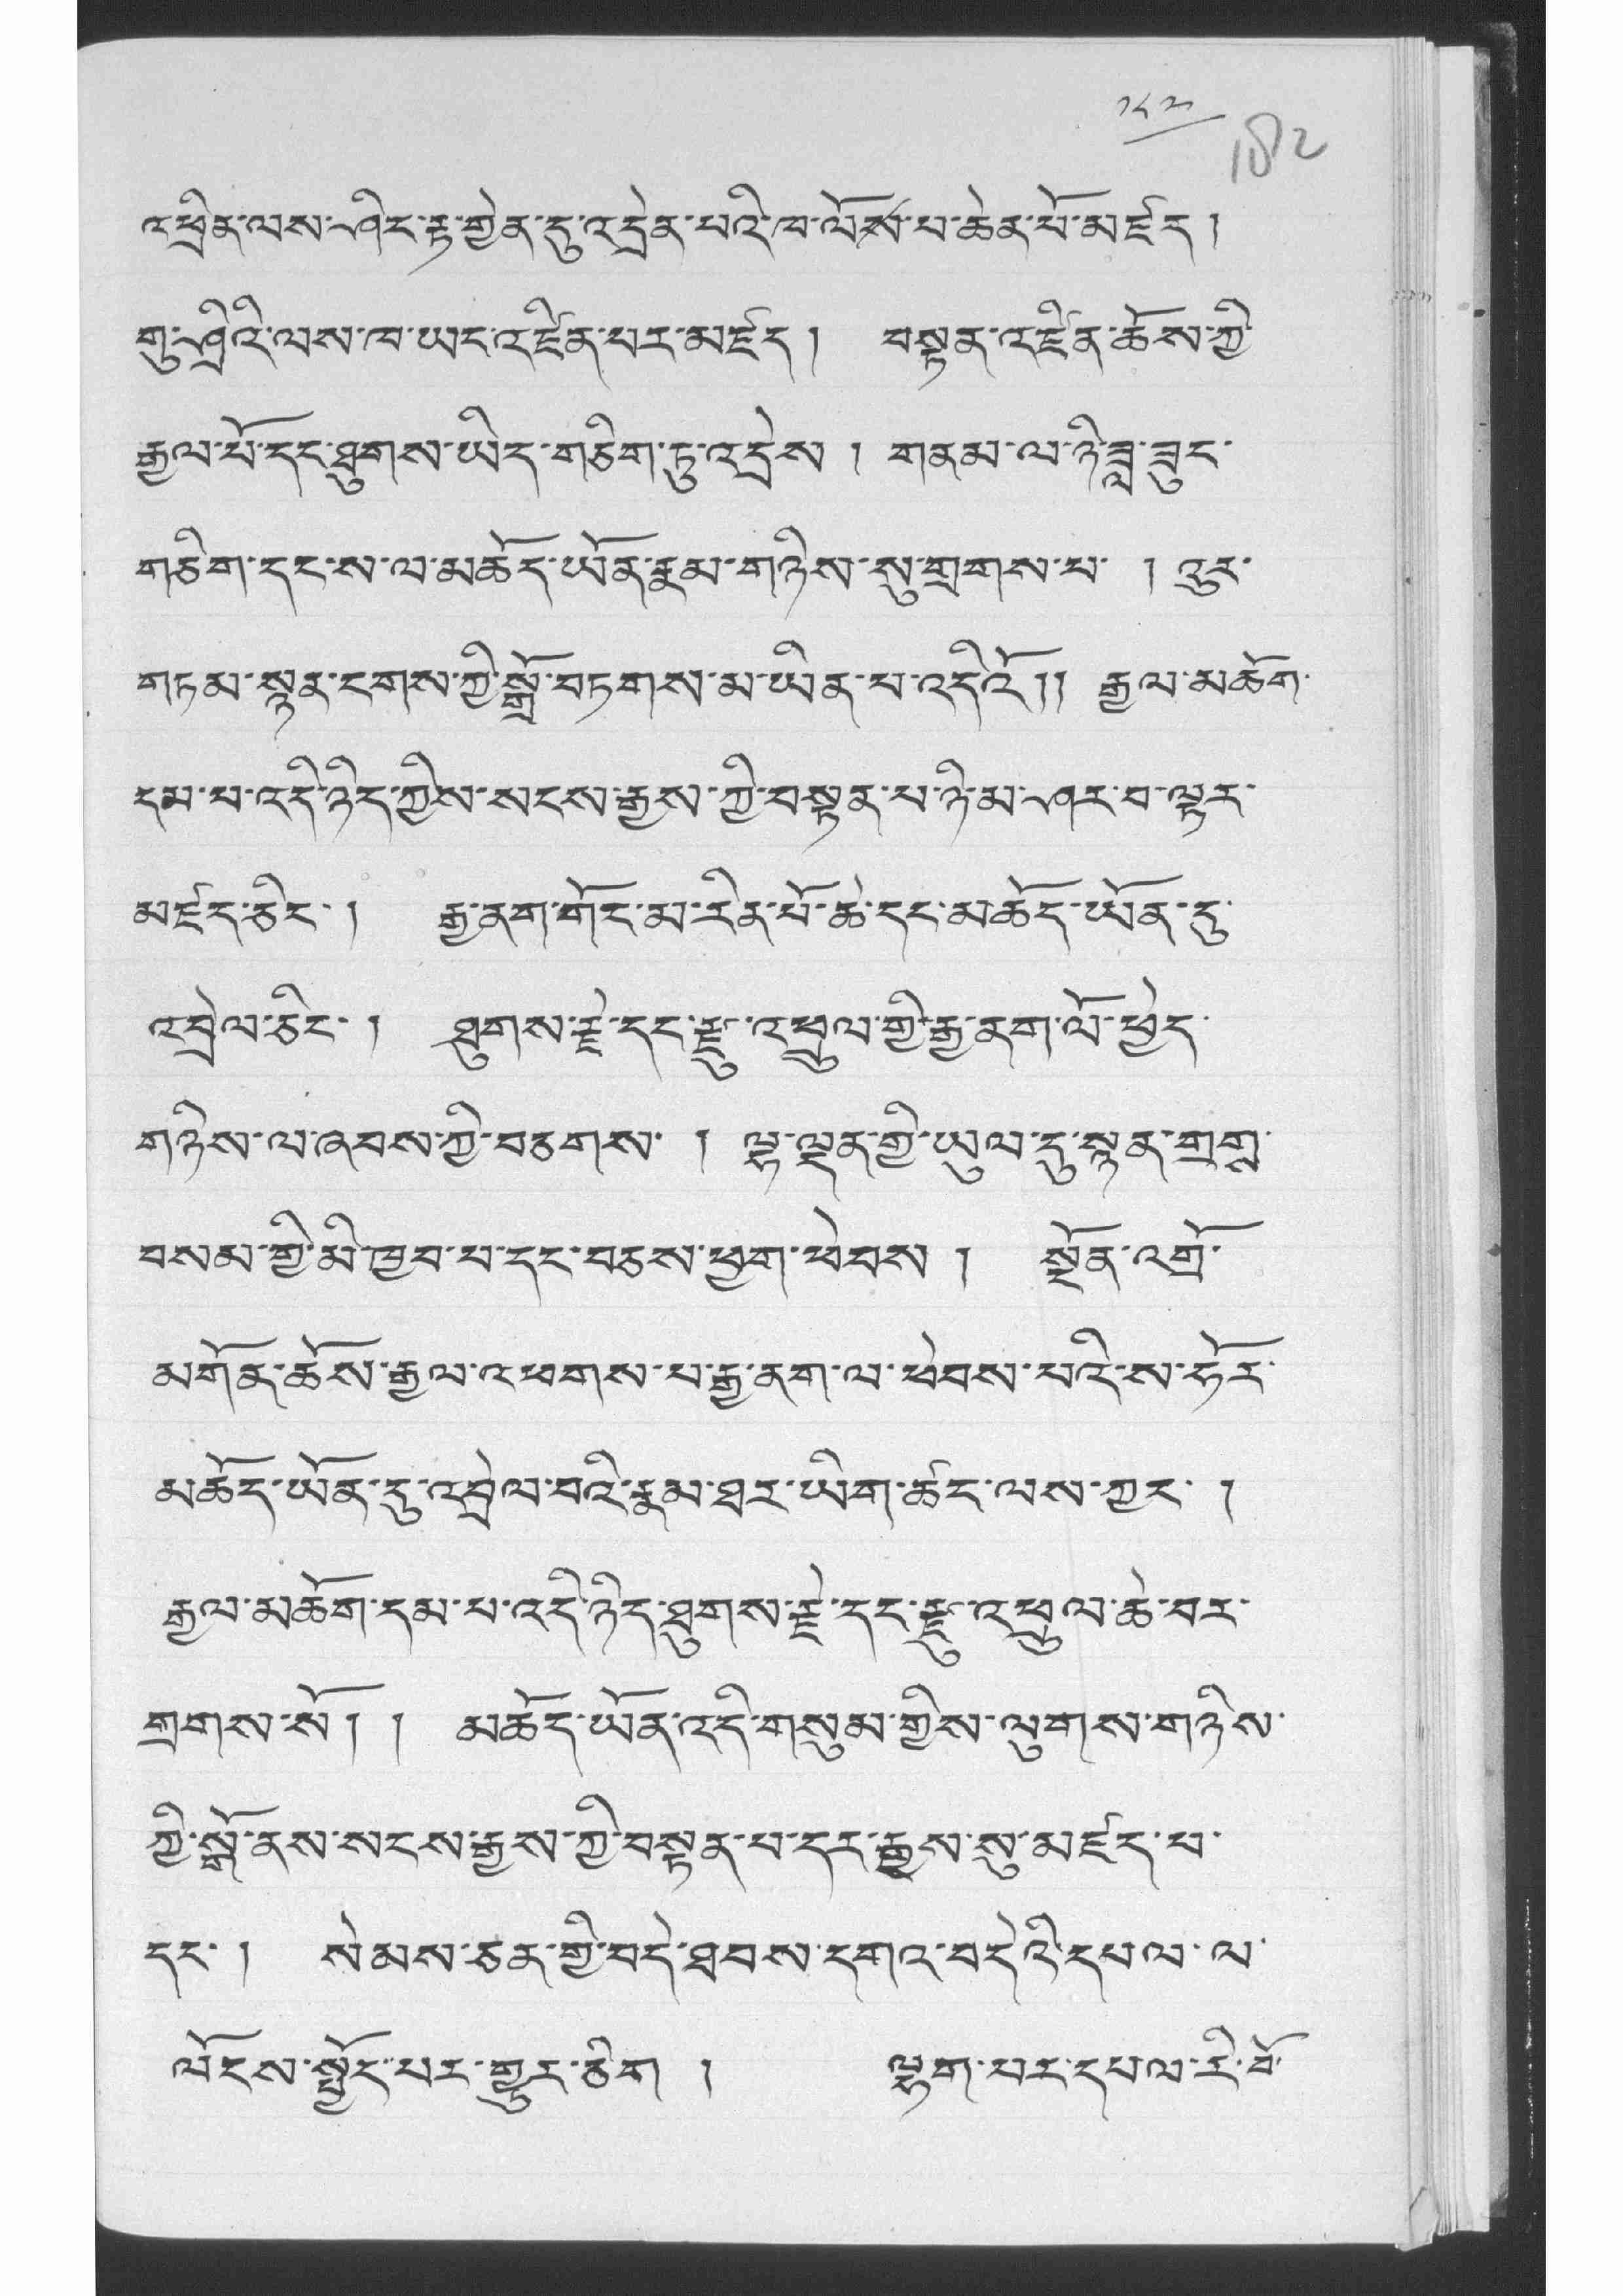 ༡༨༣
182
འཕྲིན་ལས་ཤིང་རྟ་གྱེན་དུ་འདྲེན་པའི་ཁ་ལོས་པ་ཆེན་པོ་མཛད །
གུ་ཤྲིའི་ལས་ཁ་ཡང་འཛིན་པར་མཛད ། བསྟན་འཛིན་ཆོས་ཀྱི་
རྒྱལ་པོ་དང་ཐུགས་ཡིད་གཅིག་ཏུ་འདྲེས ། གནམ་ལ་ཉི་ཟླ་ཟུང་
གཅིག་དང་ས་ལ་མཆོད་ཡོན་རྣམ་གཉིས་སུ་གྲགས་པ་ །འུར་
གཏམ་སྙན་ངགས་ཀྱི་སྒྲོ་བཏགས་མ་ཡིན་པ་འདིའོ།། རྒྱལ་མཆོག་
དམ་པ་འདི་ཉིད་ཀྱིས་སངས་རྒྱས་ཀྱི་བསྟན་པ་ཉི་མ་ཤར་བ་ལྟར་
མཛད་ཅིང་ ། རྒྱ་ནག་གོང་མ་རིན་པོ་ཆེ་དང་མཆོད་ཡོན་དུ་
འབྲེལ་ཅིང་ ། ཐུགས་རྗེ་དང་རྫུ་འཕྲུལ་གྱི་རྒྱ་ནག་ལོ་ཕྱེད་
གཉིས་ལ་ཞབས་ཀྱི་བཅགས་ ། ལྷ་ལྡན་གྱི་ཡུལ་དུ་སྙན་གྲགས་
བསམ་གྱི་མི་ཁྱབ་པ་དང་བཅས་ཕྱག་ཕེབས ། སྔོན་འགྲོ་
མགོན་ཆོས་རྒྱལ་འཕགས་པ་རྒྱ་ནག་ལ་ཕེབས་པའི་ས་ཧོར་
མཆོད་ཡོན་དུ་འབྲེལ་བའི་རྣམ་ཐར་ཡིག་ཚད་ལས་ཀྱང་ །
རྒྱལ་མཆོག་དམ་པ་འདི་ཉིད་ཐུགས་རྗེ་དང་རྫུ་འཕྲུལ་ཆེ་བར་
གྲགས་སོ། ། མཆོད་ཡོན་འདི་གསུམ་གྱིས་ལུགས་གཉིས་
ཀྱི་སྒོ་ནས་སངས་རྒྱས་ཀྱི་བསྟན་པ་དར་རྒྱས་སུ་མཛད་པ་
དང་ ། སེམས་ཅན་གྱི་བདེ་ཐབས་དགའ་བདེའི་དཔལ་ལ་
ལོངས་སྤྱོད་པར་གྱུར་ཅིག ། ལྷག་པར་དཔལ་རི་བོ་